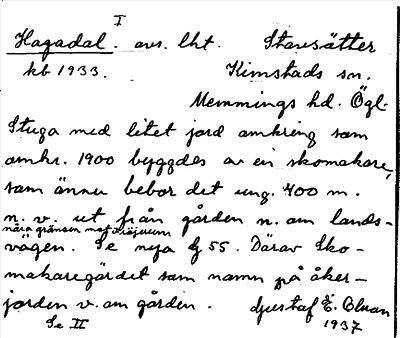 I
Hagadal. avs. lht. Stavsätter
kb 1933. Kimstads sn.
Memmings hd. Ögl.
Stuga med litet jord omkring som
omkr. 1900 byggdes av en skomakare,
som ännu bebor det ung. 400 m.
n. v. ut från gården n. om lands-
nära gränsen mot
vägen. Se nya bg 55. Därav Sko-
makaregärdet som namn på åker-
jorden v. om gården. Gustaf E.
Se II 1937